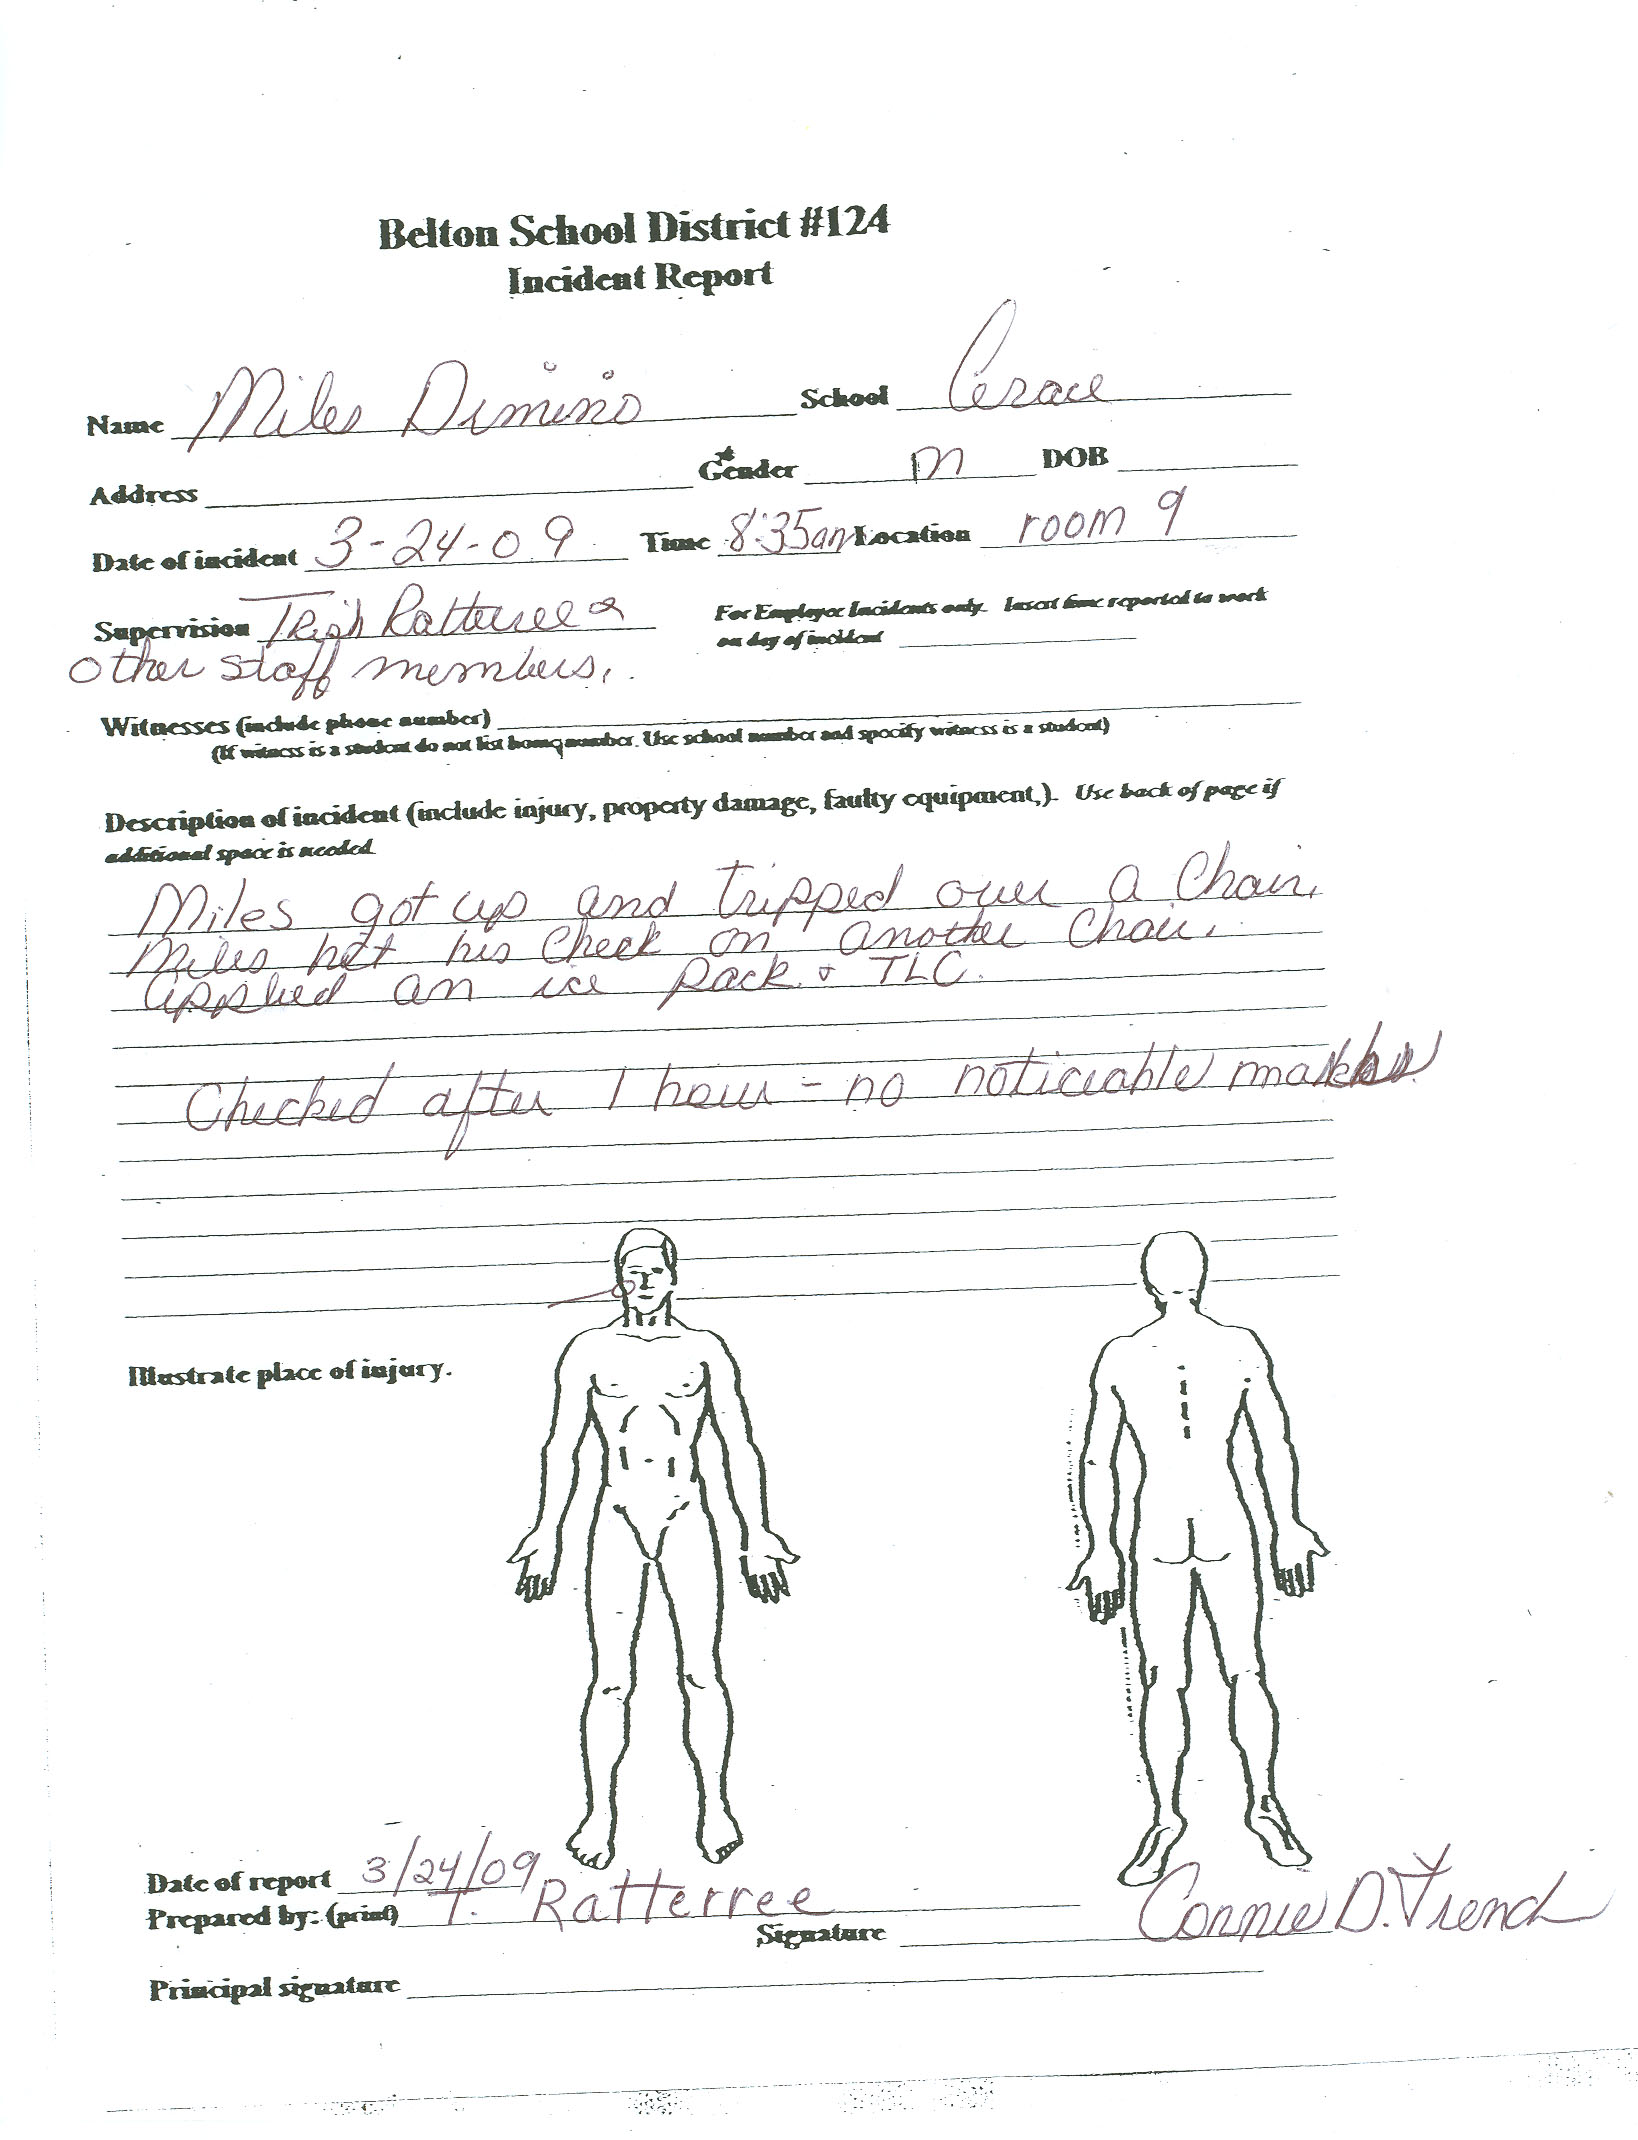 Belton School District #124
Incident Report
Name Miles Dimino School Grace
Address Gender M DOB
Date of incident 3-24-09 Time 8:35am Location room 9
Supervision Trish Ratterree &
other staff members.
For Employee Incidents only. Insert time reported to work
on day of incident
Witnesses (include phone number)
(If witness is a student do not list home number. Use school number and specify witness is a student)
Description of incident (include injury, property damage, faulty equipment,). Use back of page if
additional space is needed
Miles got up and tripped over a chair.
Miles hit his cheek on another chair.
applied an ice pack & TLC.
Checked after 1 hour - no noticeable marks
Illustrate place of injury.
Date of report 3/24/09
Prepared by: (print) T. Ratterree
Signature Connie D. French
Principal signature